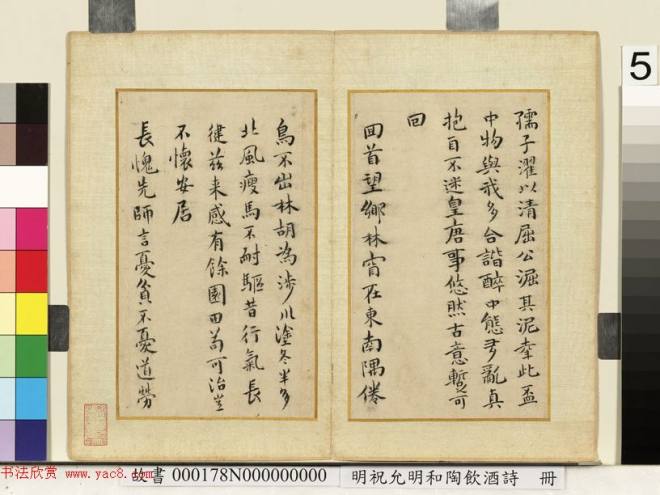 孺子濯以清屈公淈其泥牽此盃
中物與戒多合諧醉中態多亂真
抱自不迷皇唐事悠然古意暫可
回
回首望鄉林宵在東南隅倦
鳥不出林胡為涉川塗冬半多
北風瘦馬不耐驅昔行氣長
健茲来感有餘園田苟可治豈
不懷安居
長愧先師言憂貧不憂道勞
5
书法欣赏
www.yac8.com
故書 000178N000000000 明祝允明和陶飲酒詩 冊